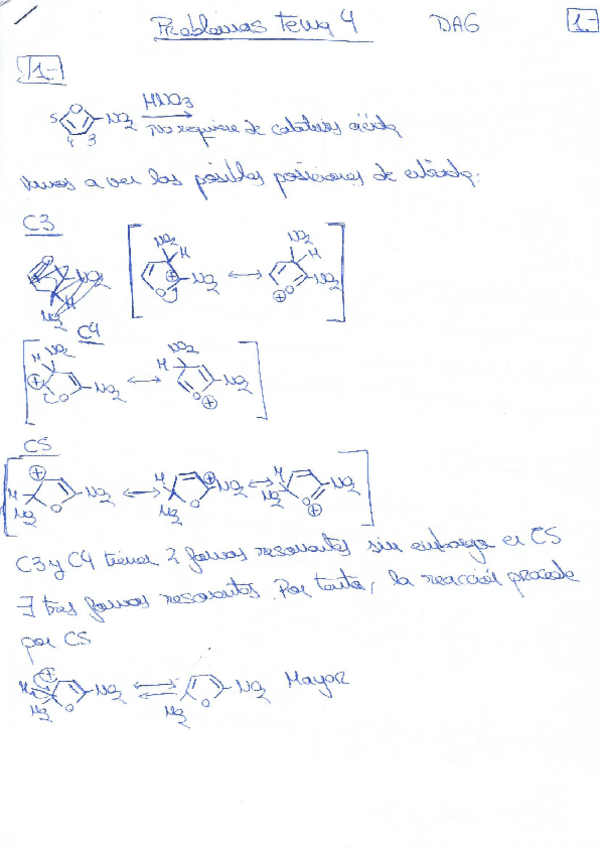 Problemas tema 4 DAG 1.-
1.-
HNO3
5 O NO2 No requiere de catálisis ácida
4 3
vamos a ver las posibles posiciones de entrada:
C3
NO2 NO2
H H
NO2 NO2 NO2
H ⊕ O ⊕ O
NO2
C4
H NO2 H NO2
⊕ NO2 NO2
O O ⊕
C5
⊕ H ⊕ H
H NO2 NO2 NO2
NO2 O NO2 O NO2 O ⊕
C3 y C4 tienen 2 formas resonantes sin embargo en C5
∃ tres formas resonantes. Por tanto, la reacción procede
por C5
⊕
H NO2 NO2 Mayor
NO2 O NO2 O